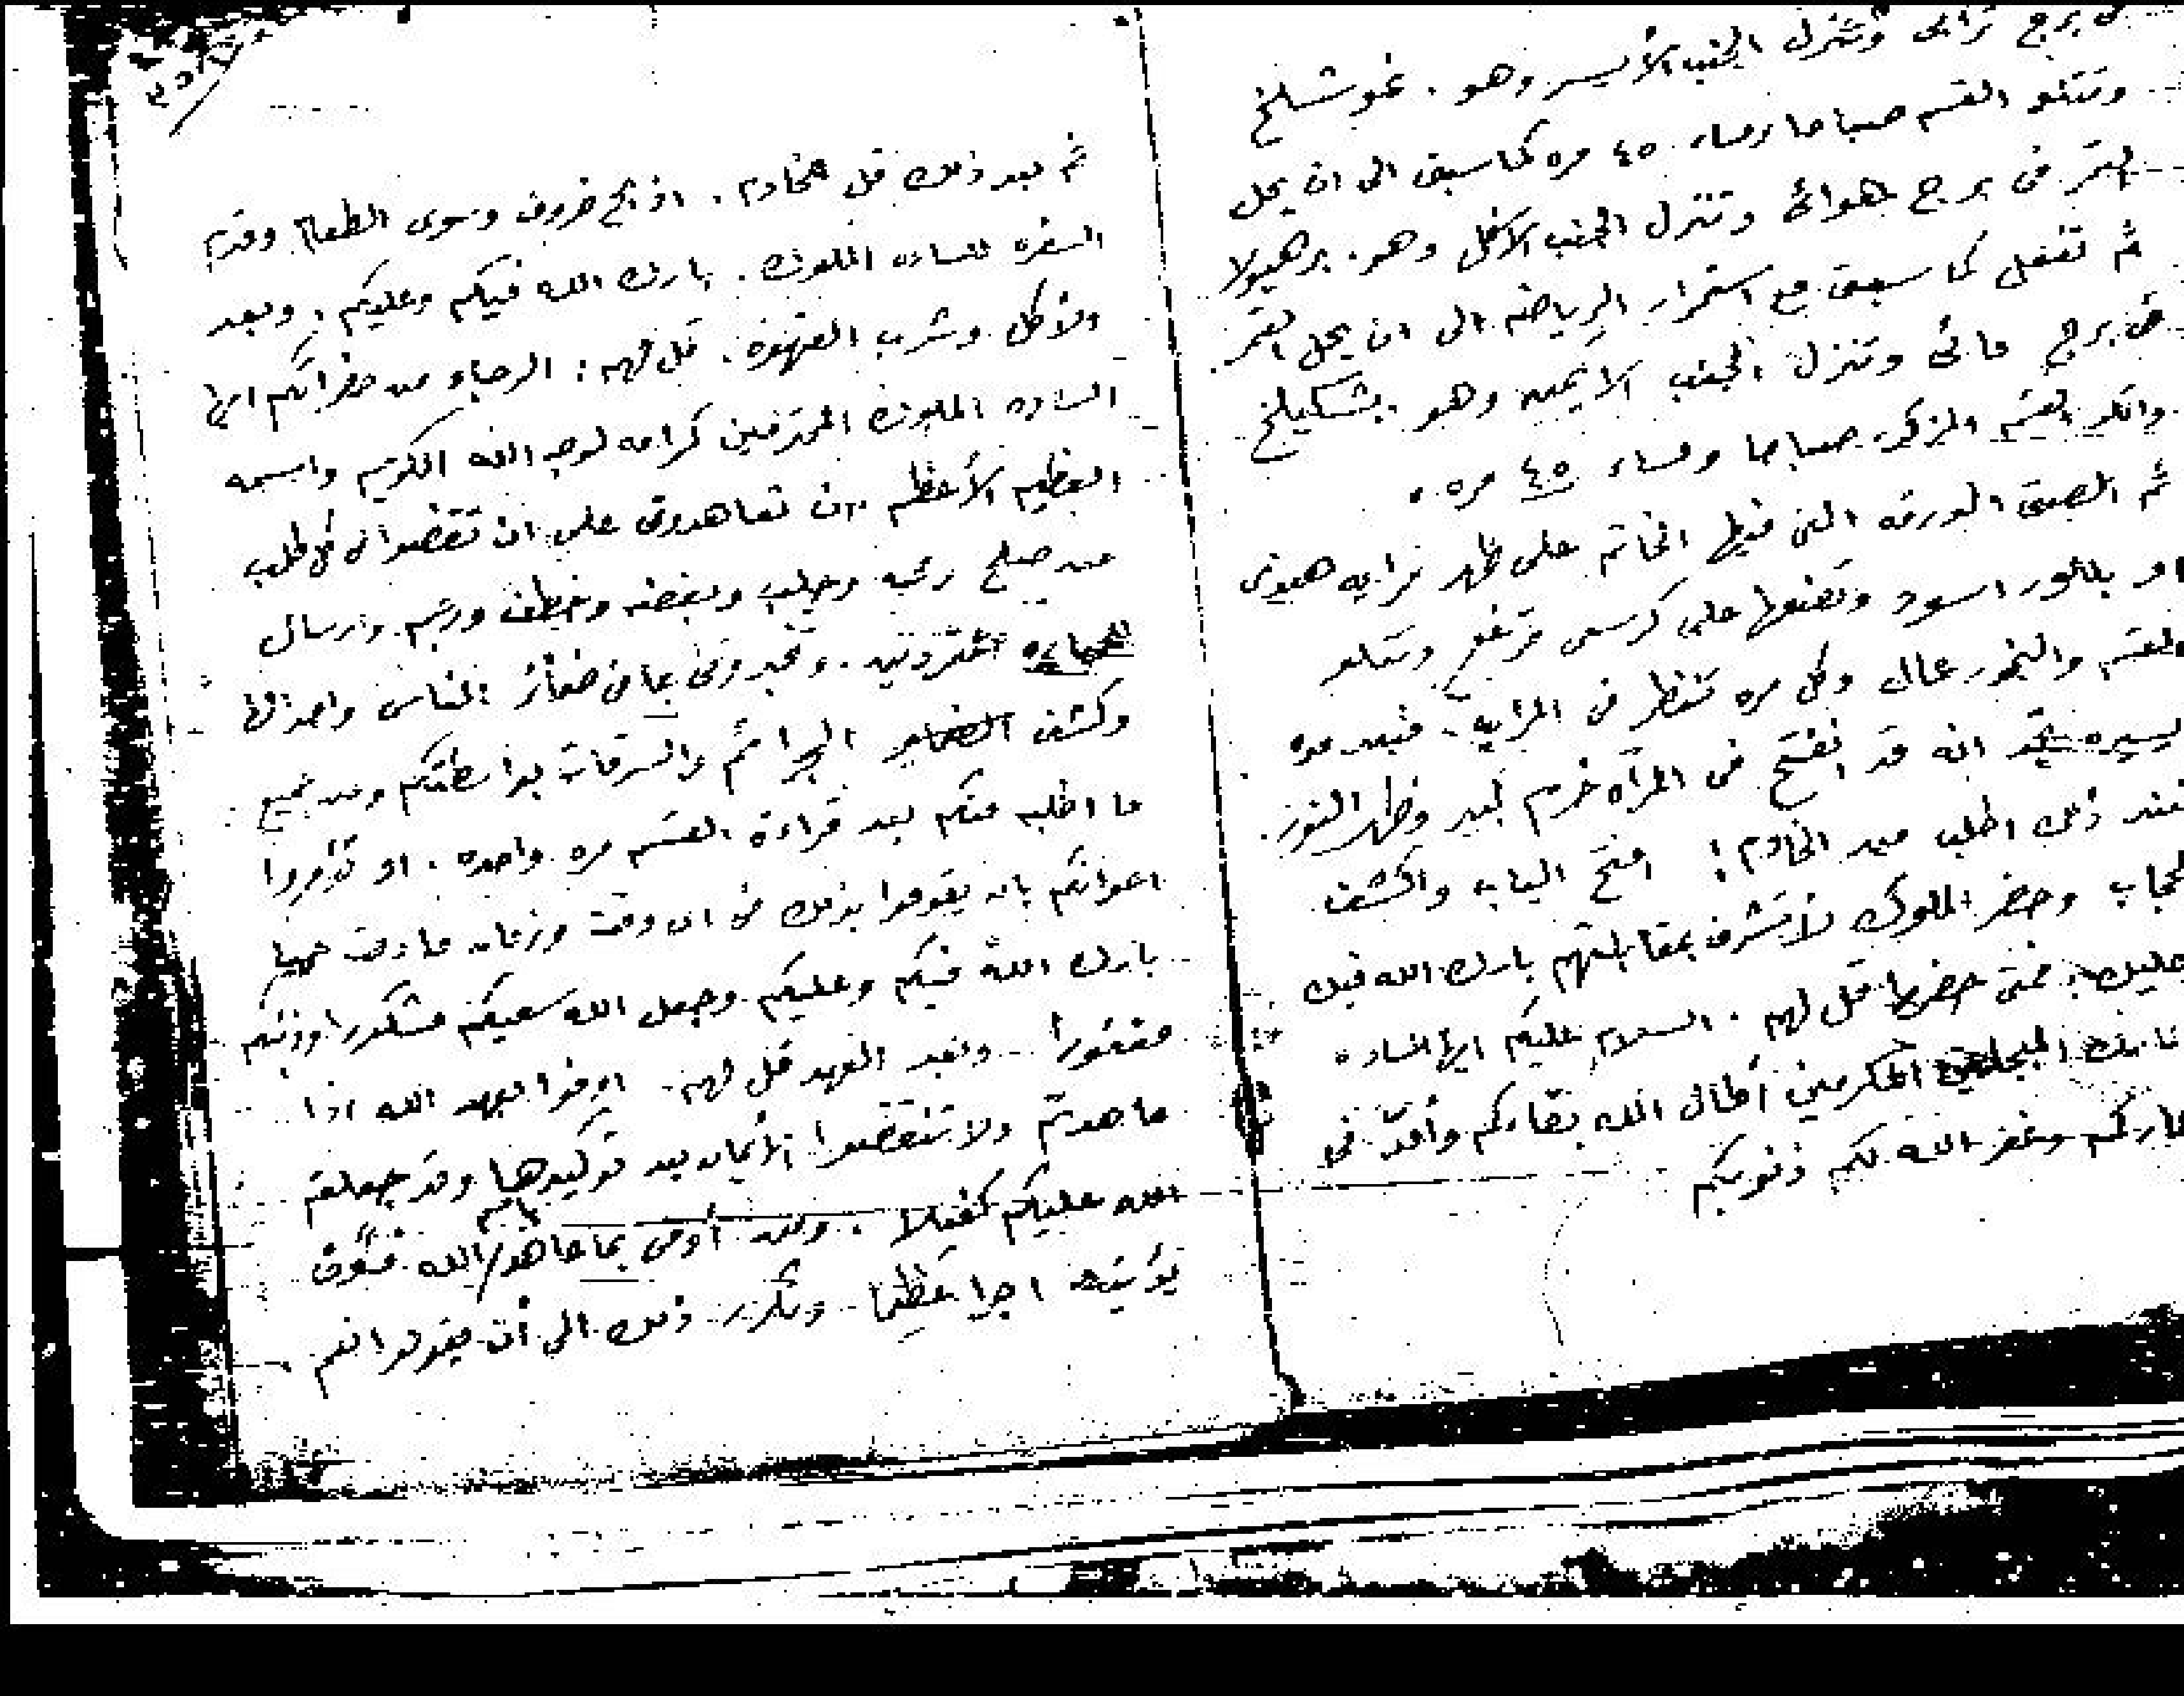 في برج ترابى وتنزل الجنب الأيسر وهو . غوشلخ
وتتلو القسم صباحا ومساء ٤٥ مره كما سبق الى ان يحل
القمر فى برج هوائى وتنزل الجنب الاخفل وهو . برهيولا
ثم تفعل كما سبق مع استمرار الرياضه الى ان يحل القمر
فى برج مائى وتنزل الجنب الايمن وهو . بشكيلخ
واتلو القسم المزكور صباحا ومساء ٤٥ مره .
ثم الصق الورقه التى فيها الخاتم على ظهر مرايه هيون
او بللور اسود وتضعها على كرسى مرتفع وتتلو
القسم والبخور عمال وكل مره تنظر فى المرايه . فبعد مده
يسيره تجد انه قد انفتح فى المرآه خرم كبير وظهر النور .
عند ذلك اطلب من الخادم : افتح الباب واكشف
الحجاب وحضر الملوك لأتشرف بمقابلتهم بارك الله فيك
وعليك . فمتى حضروا قل لهم . السلام عليكم ايها الساده
المبجلين المكرمين أطال الله بقاركم وأمد فى
اعماركم وغفر الله لكم ذنوبكم
ثم بعد ذلك قل للخادم . اذبح خروف وسوى الطعام وقدم
السفره للساده الملوك . بارك الله فيكم وعليكم ، وبعد
ولأكل وشرب القهوه . قل لهم : الرجاء من حضراتكم ايها
الساده الملوك المحترمين كرامه لوجه الله الكريم واسمه
العظيم الأعظم ان تعاهدونى على ان تقضوا لى كل طلب
من صلح ومحبه وجلب وبغضه وخطف ورجم وارسال
للجبابره المتمردين . وتخبرونى بما فى ضمائر الناس واحوالها
وكشف الضماير الجرائم والسرقات بواسطتكم ومن جميع
ما اطلبه منكم بعد قراءة القسم مره واحده . او تأمروا
اعوانكم بان يقوموا بذلك فى اى وقت وزمان ما دمت حيا
بارك الله فيكم وعليكم وجعل الله سعيكم مشكورا وذنبكم
مغفورا . وبعد العهد قل لهم . اوفوا بعهد الله اذا
عاهدتم ولا تنقضوا الأيمان بعد توكيدها وقد جعلتم
الله عليكم كفيلا . ومن أوفى بما عاهد عليه الله فسوف
يؤتيه اجرا عظيما وتكرر ذلك الى أن يقولوا نعم